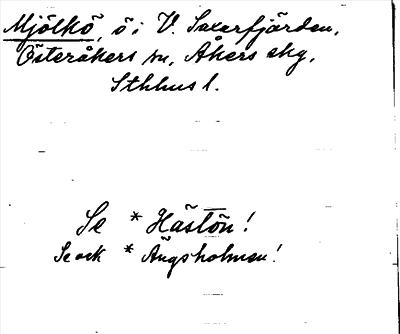 Mjölkö, ö i V. Saxarfjärden,
Österåkers sn, Åkers skg,
Sthlms l.
Se * Hästön!
Se ock * Ängsholmen!